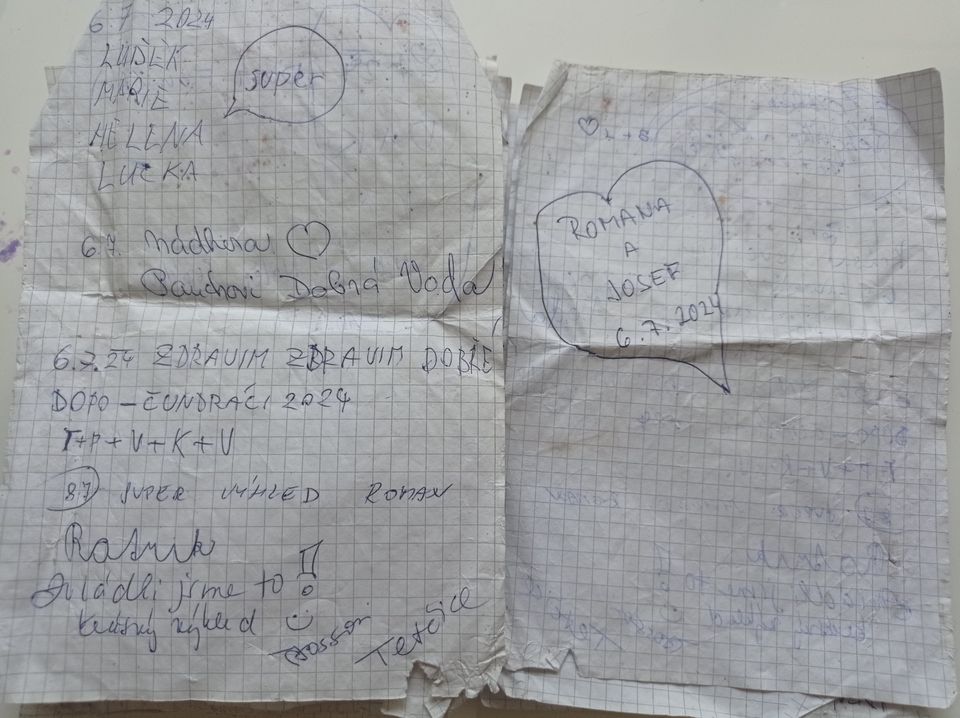 6.7 2024
LUDĚK
MARIE
HELENA
LUCKA
super
6.7. Nádhera ♡
Dobrá Voda
6.7.24 ZDRAVIM ZDRAVIM DOBŘE
DOPO - ČUNDRÁCI 2024
T+P+V+K+V
8.7 SUPER VÝHLED ROMAN
zvládli jsme to !
krásný výhled
Tetčice
♡ L + B
ROMANA
A
JOSEF
6.7.2024